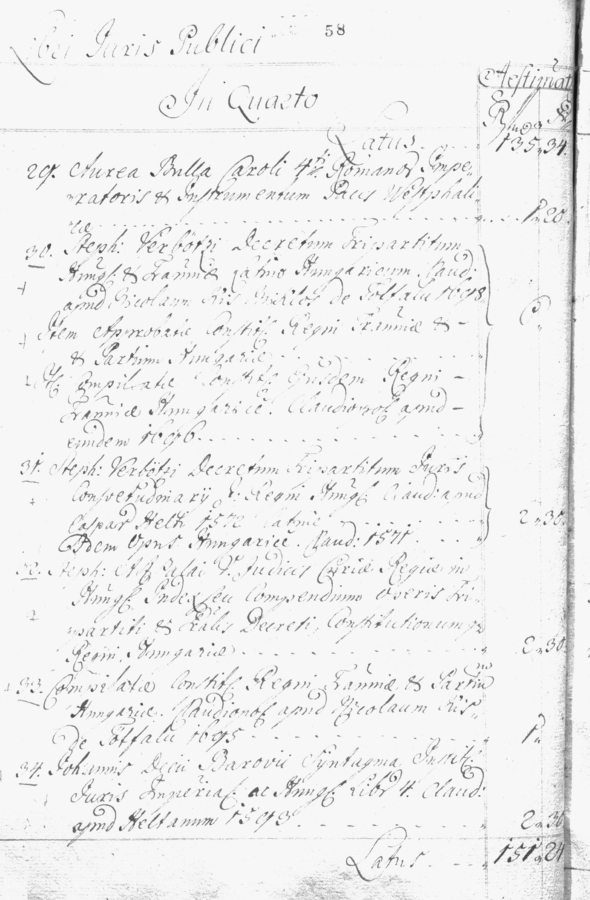 58
Libri Juris Publici
In Quarto
Aestimat
Latus 135 34.
29. Aurea Bulla Caroli 4ti Romanor Impe-
ratoris & Instrumentum Pacis Westphali-
cæ 1 20.
30. Steph: Verbötzi Decretum Tripartitum
Hung: & Tranniæ Latino Hungaricum. Claud:
apud Nicolaum Kis Miklos de Tótfalu 1698
Item Approbatæ Constit: Regni Tranniæ &
& Partium Hungariæ
Compilatæ Constit: Ejusdem Regni
Tranniæ Hungaricè. Claudiop apud
eundem 1696
31. Steph: Verbötzi Decretum Tripartitum Juris
Consvetudinarij Regni Hung: Claud: apud
Caspar Helti 1572 Latinè 2 30.
Idem Opus Hungaricè. Claud: 1571.
32. Steph: Judicis Curiæ Regiæ in
Hung: Index seu Compendium Operis Tri-
partiti & Gralis Decreti, Constitutionum
Regni Hungariæ 2 30.
33. Compilatæ Constit: Regni Tranniæ & Partium
Hungaricè. Claudiop apud Nicolaum Kis
de Tótfalu 1695 1
34. Johannis Decii Barovii Syntagma Instit:
Juris Imperial: ac Hung: Libr 4. Claud:
apud Heltanum 1593 2 30
Latus 151 24